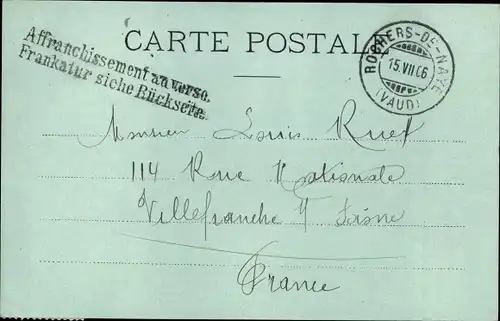 CARTE POSTALE
Affranchissement au verso.
Frankatur siehe Rückseite.
ROCHERS-DE-NAYE
15.VII.06
(VAUD)
Monsieur Louis Ruef
114 Rue Nationale
Villefranche s/ Saône
France